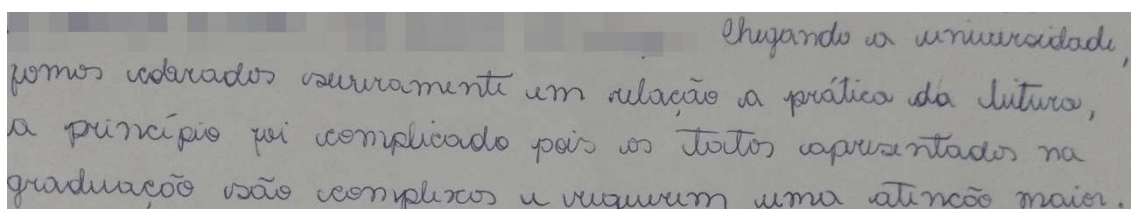 Chegando a universidade,
fomos cobrados severamente em relação a prática da leitura,
a princípio foi complicado pois os textos apresentados na
graduação são complexos e requerem uma atenção maior.